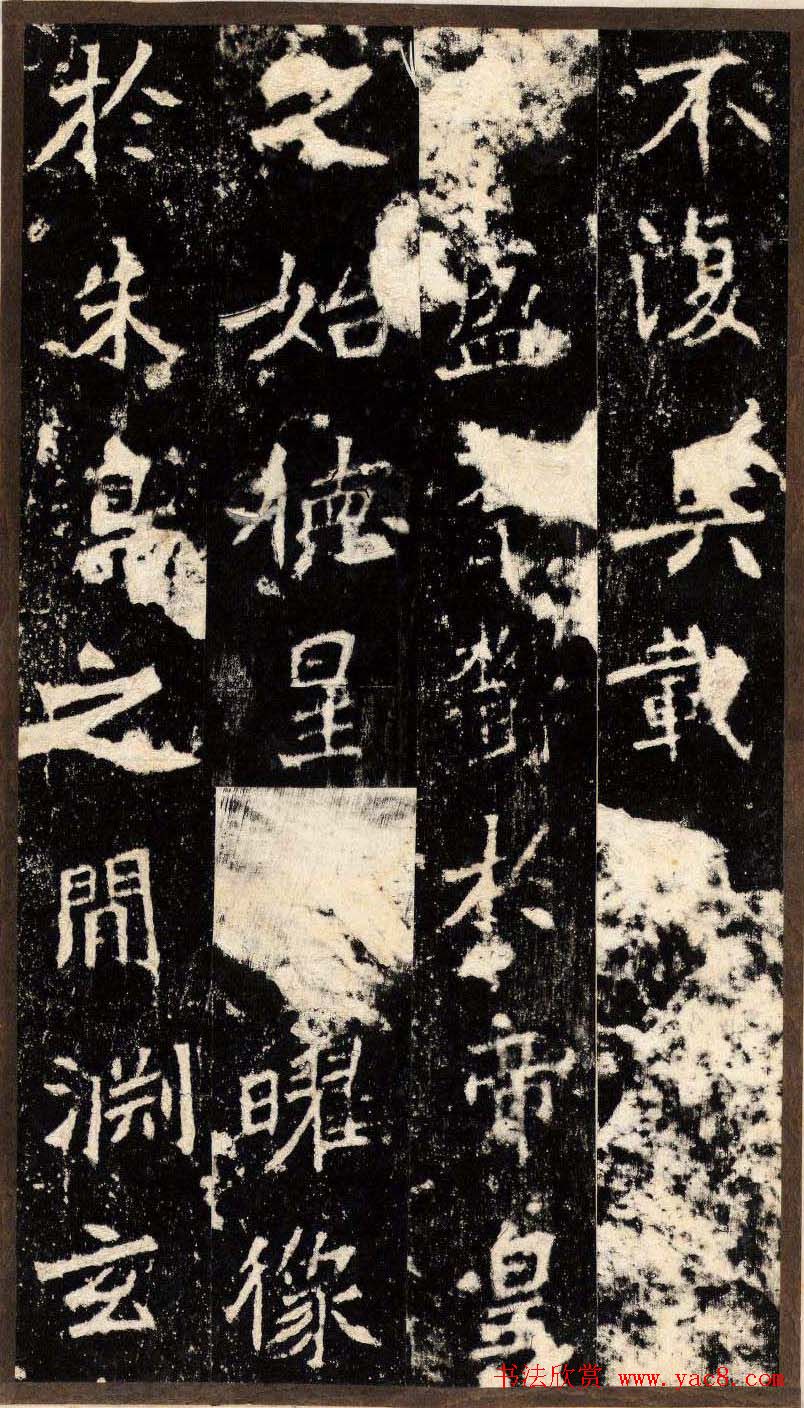 不復具載
盈於帝皇
之始德星曜像
於朱鳥之閒淵玄
书法欣赏 www.yac8.com